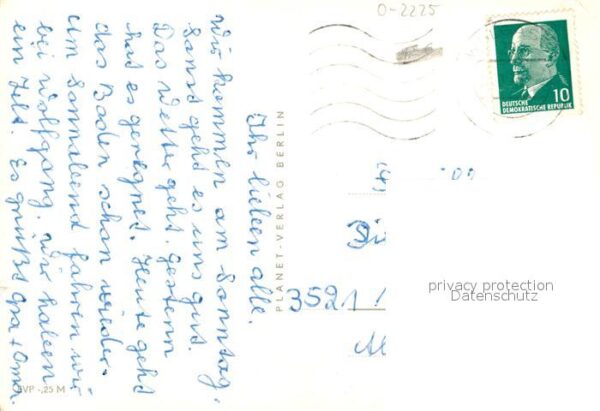 O-2225
DEUTSCHE
DEMOKRATISCHE REPUBLIK
10
Ihr lieben alle.
Wir kommen am Sonntag.
Sonst geht es uns gut.
Das Wetter geht. gestern
hat es geregnet. Heute geht
das Baden schon wieder.
Am Sonnabend fahren wir
bei Wolfgang. Wir haben
ein Zelt. Es grüßt Opa + Oma.
PLANET-VERLAG BERLIN
3521
privacy protection
Datenschutz
EVP -,25 M